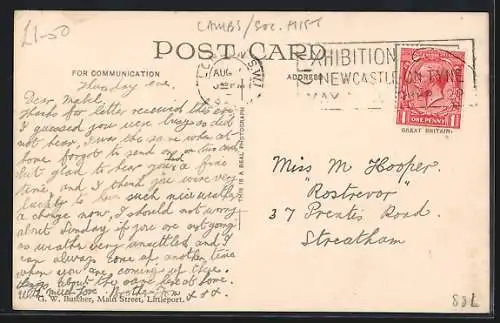 £1-50
CAMBS/SOC. HIST
POST CARD
FOR COMMUNICATION
ADDRESS
S.W.1
AUG
EXHIBITION
NEWCASTLE ON TYNE
MAY
POSTAGE
ONE PENNY
GREAT BRITAIN
THIS IS A REAL PHOTOGRAPH
Thursday eve.
Dear Mabel,
Thanks for letter received this eve
I guessed you were busy as did
not hear, I was the same when at
home forgot to send one or two cards
but glad to hear you had a fine
time, and I think you were very
lucky to have such nice weather
a change now, I should not worry
about Sunday if you are not going
as weather very unsettled and I
can always come up another time
when you are coming up there.
about the usual
With much love
G. W. Butcher, Main Street, Littleport.
x x x
Miss M Hooper.
"Rostrevor"
37 Prentis Road.
Streatham